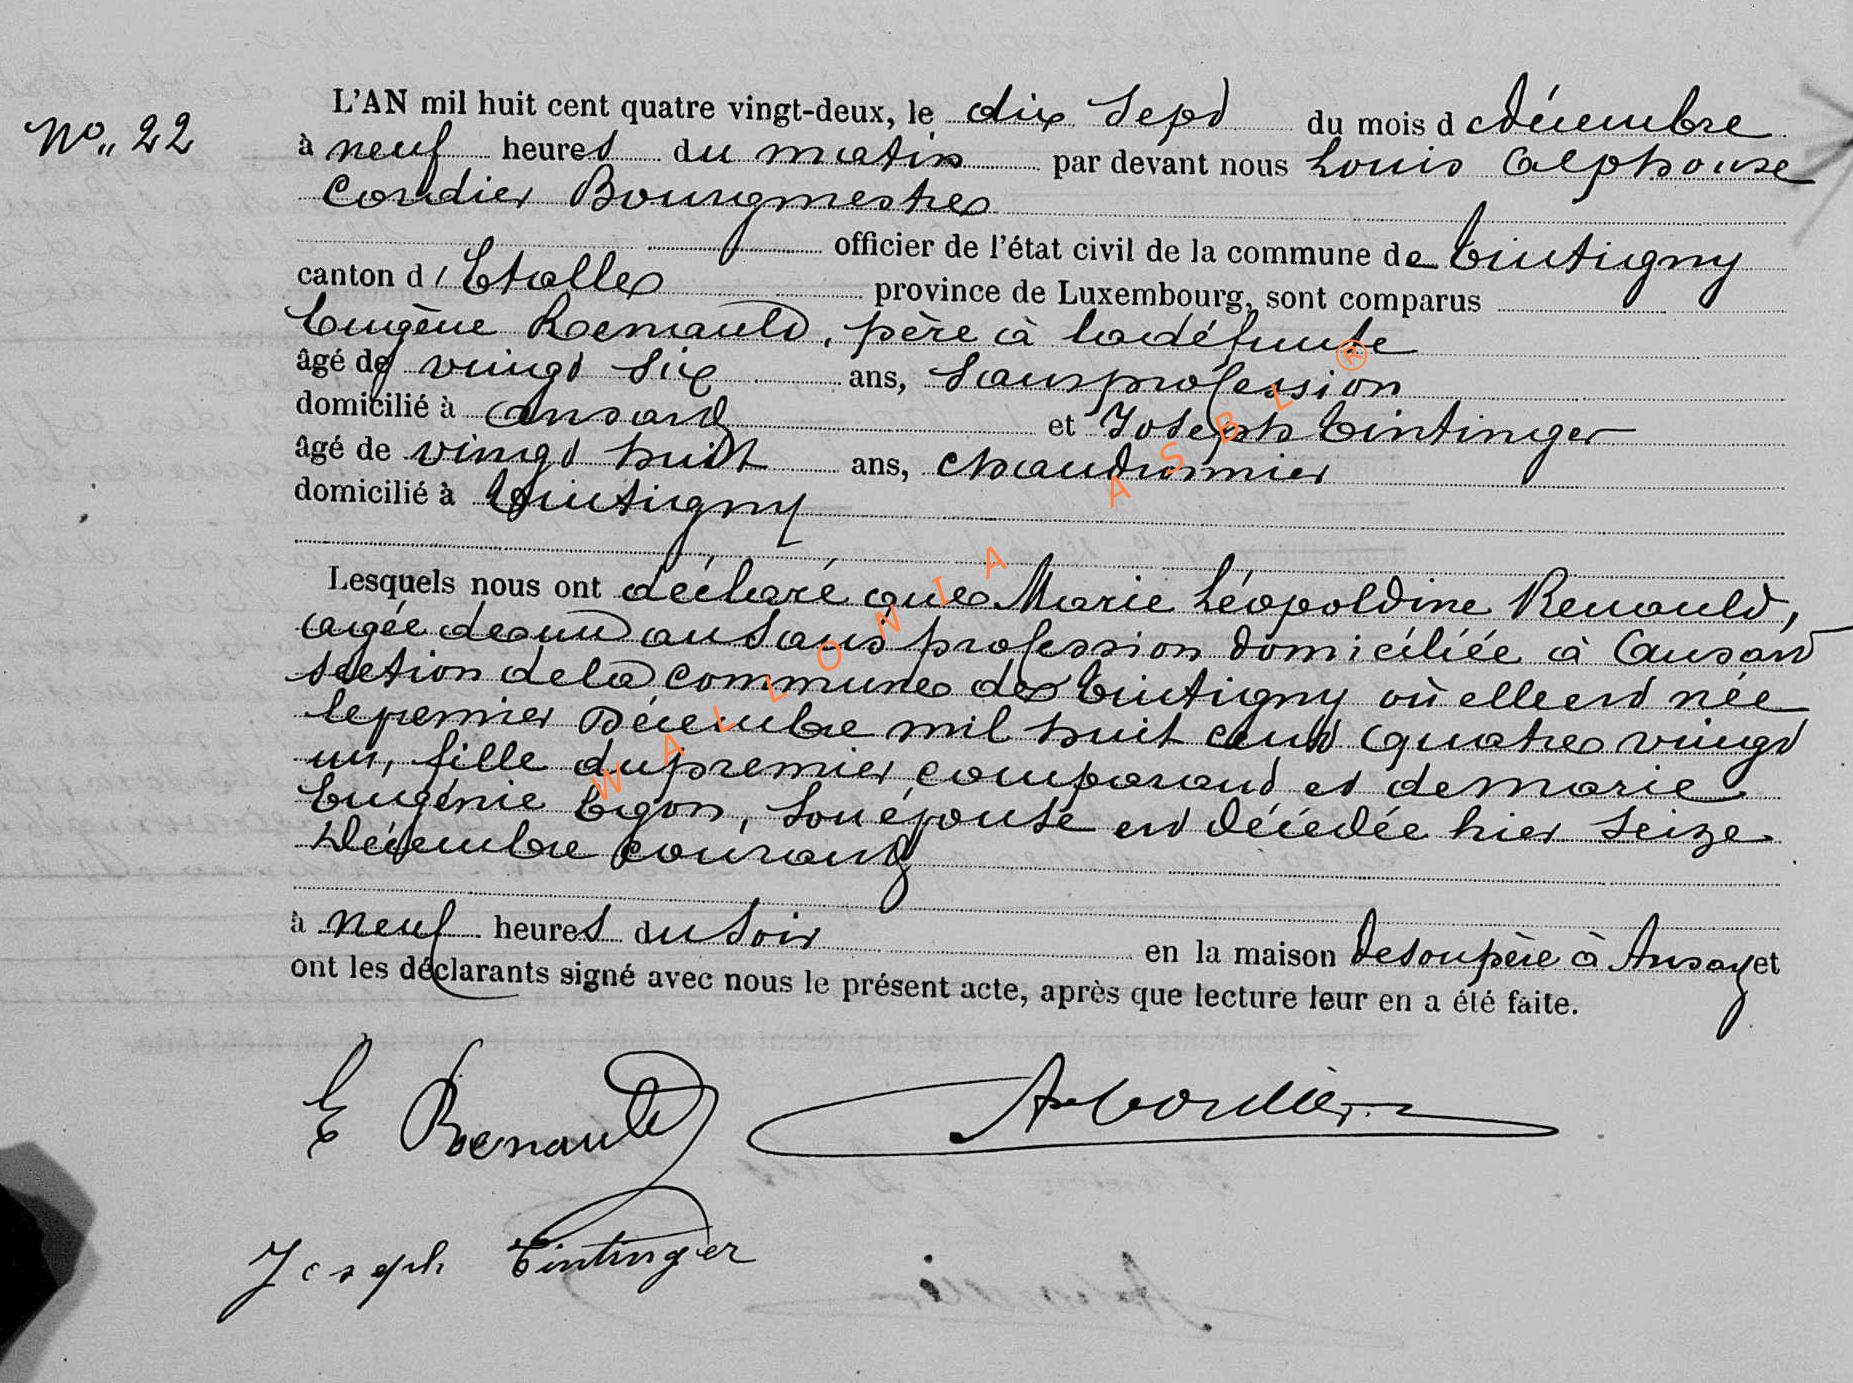 No. 22
L'AN mil huit cent quatre vingt-deux, le dix sept du mois d décembre
à neuf heures du matin par devant nous Louis Alphonse
Cordier Bourgmestre
officier de l'état civil de la commune de Tintigny
canton d'Etalle province de Luxembourg, sont comparus
Eugène Renauld, père à la défunte
âgé de vingt six ans, sans profession
domicilié à ansart et Joseph Tintinger
âgé de vingt huit ans, chaudronnier
domicilié à Tintigny
Lesquels nous ont déclaré que Marie Léopoldine Renauld,
agée de un an sans profession domiciliée à Ansart
section de la commune de Tintigny où elle est née
le premier Décembre mil huit cent quatre vingt
un, fille du premier comparant et de marie
Eugénie Egon, son épouse est décédée hier seize
Décembre courant
à neuf heures du soir en la maison de son père à Ansart et
ont les déclarants signé avec nous le présent acte, après que lecture leur en a été faite.
E Renauld A Cordier
Joseph Tintinger
WALLONIA ASBL ®